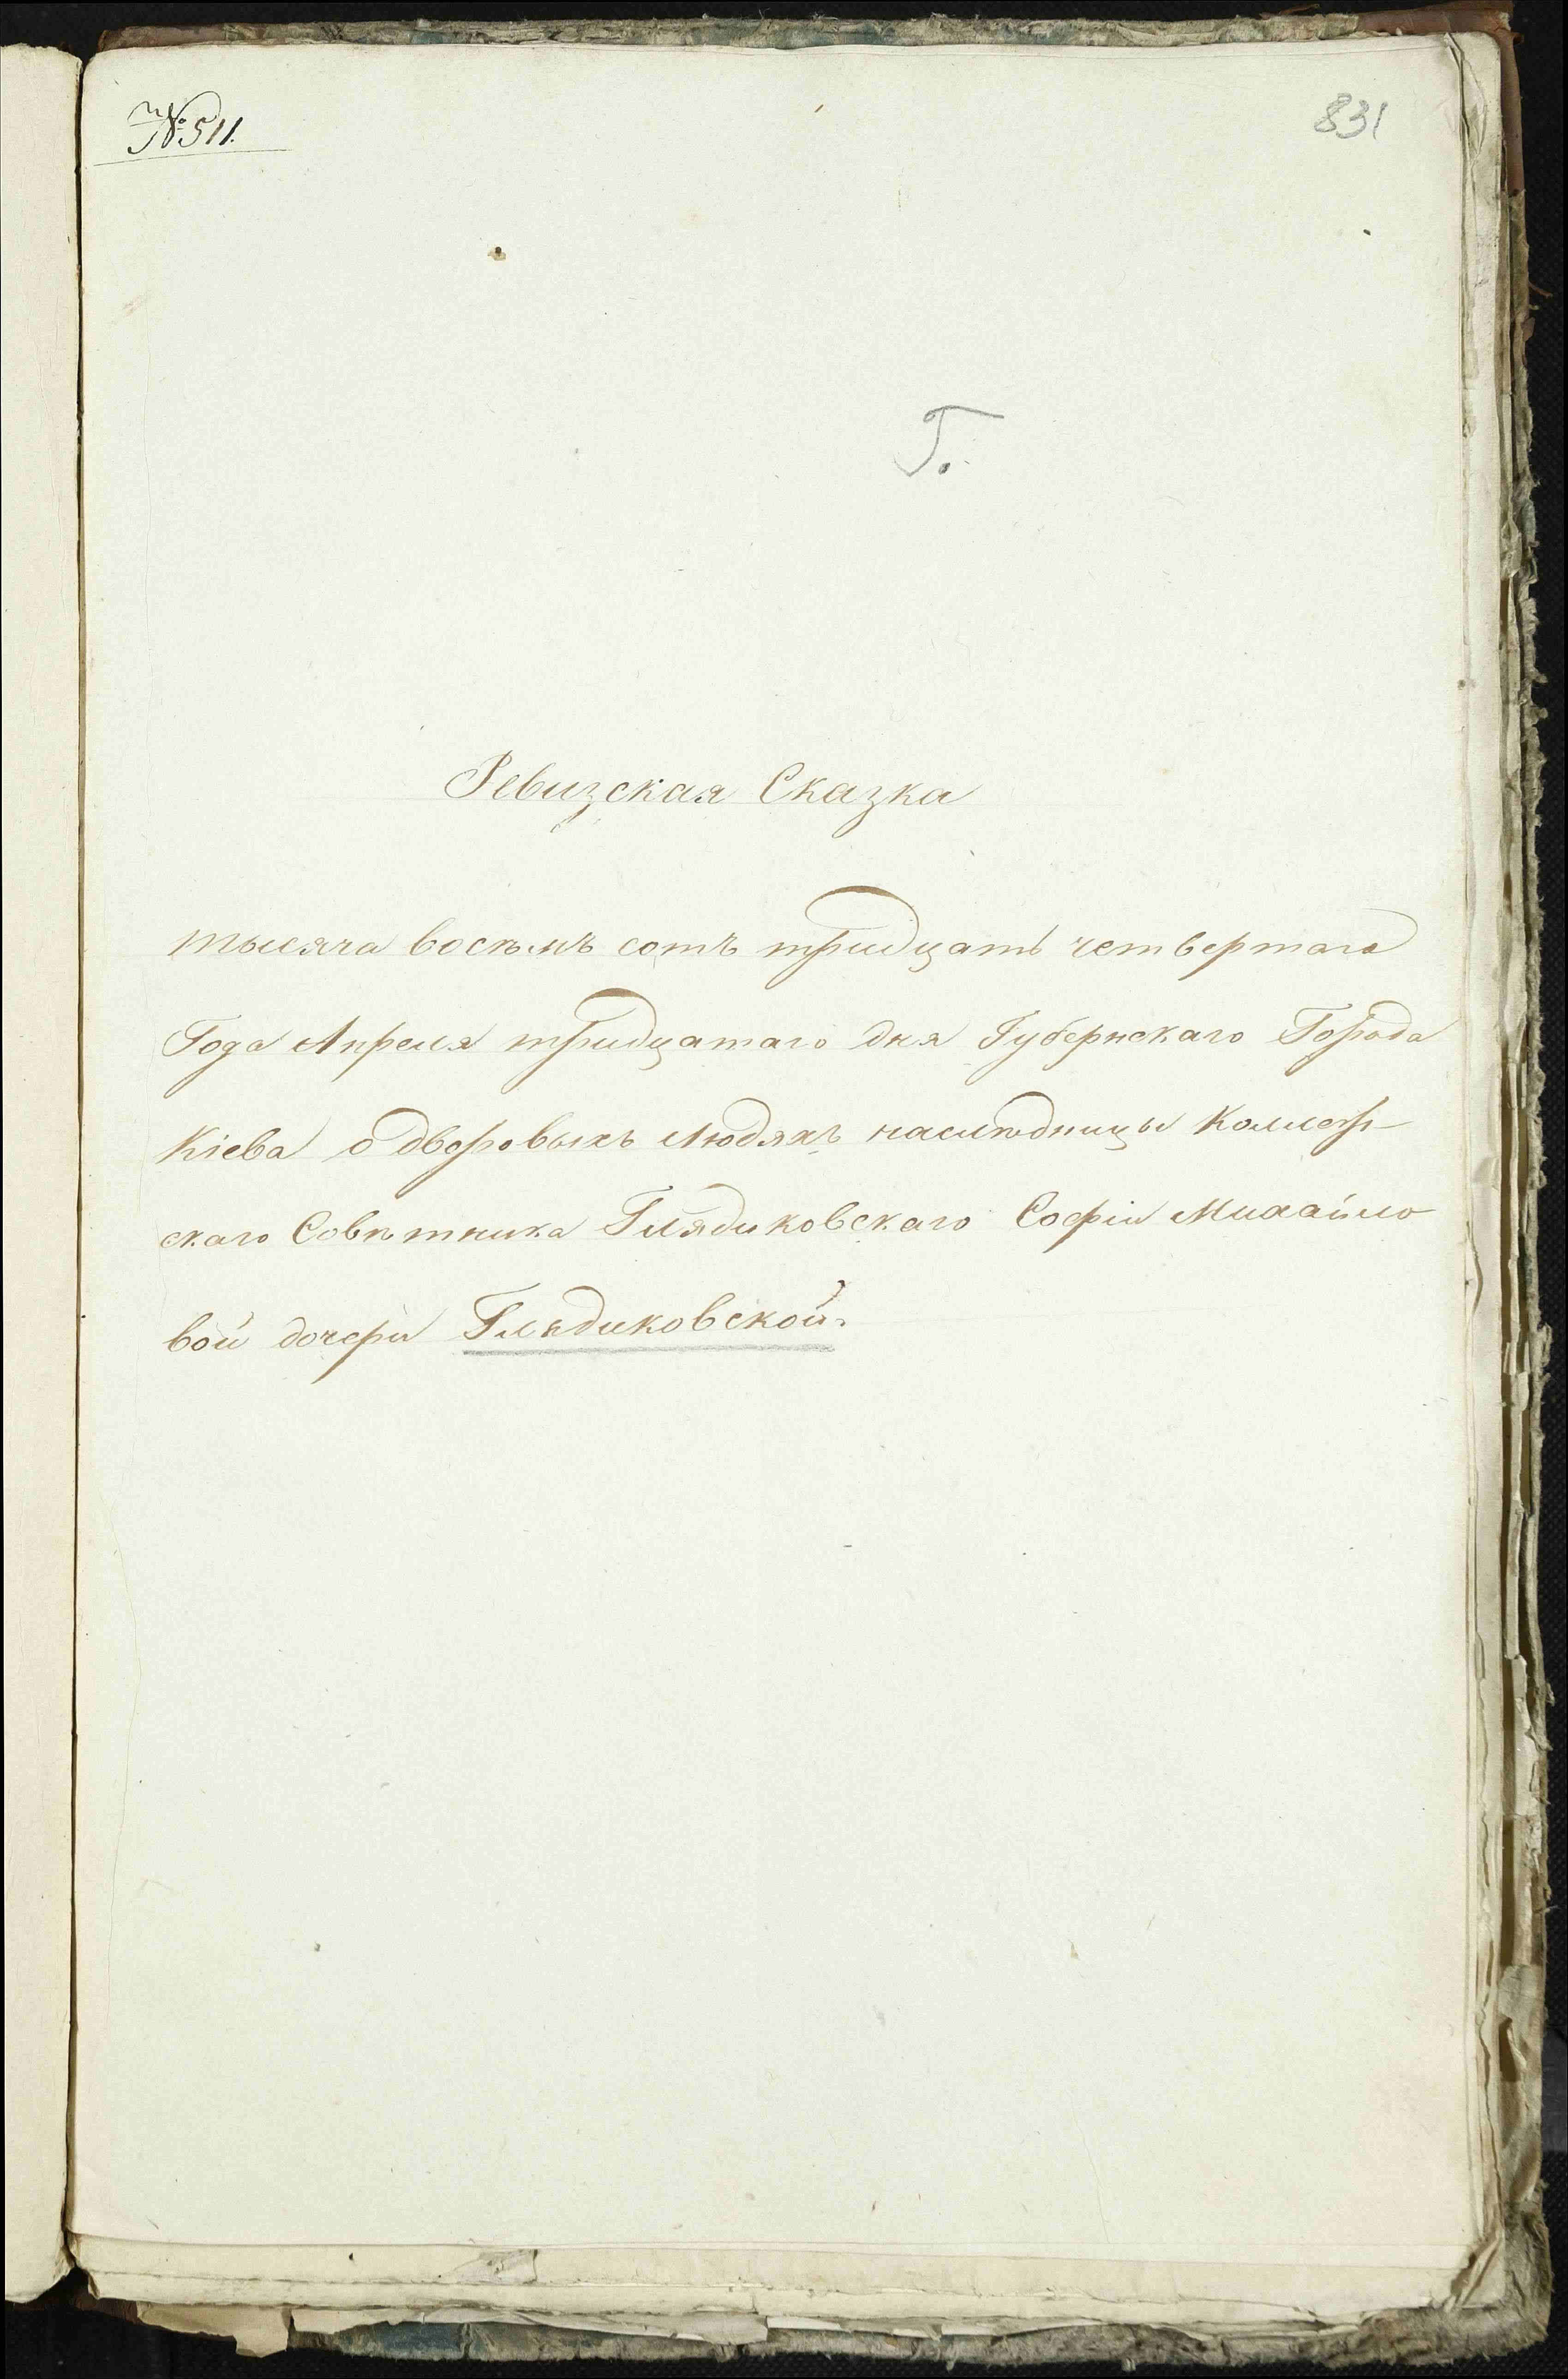 № 511.
831
Г.
Ревизская Сказка
тысяча восемъ сотъ тридцать четвертаго
Года Апреля тридцатаго дня Губернскаго Города
Кіева о дворовыхъ людяхъ наслѣдницы Коллеж-
скаго Совѣтника Глядиковскаго Софіи Михайло
вой дочери Глядиковской.